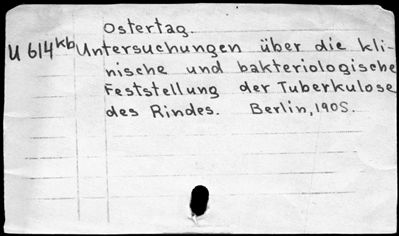 Ostertag.
U 614kb Untersuchungen über die kli-
nische und bakteriologische
Feststellung der Tuberkulose
des Rindes. Berlin, 1905.